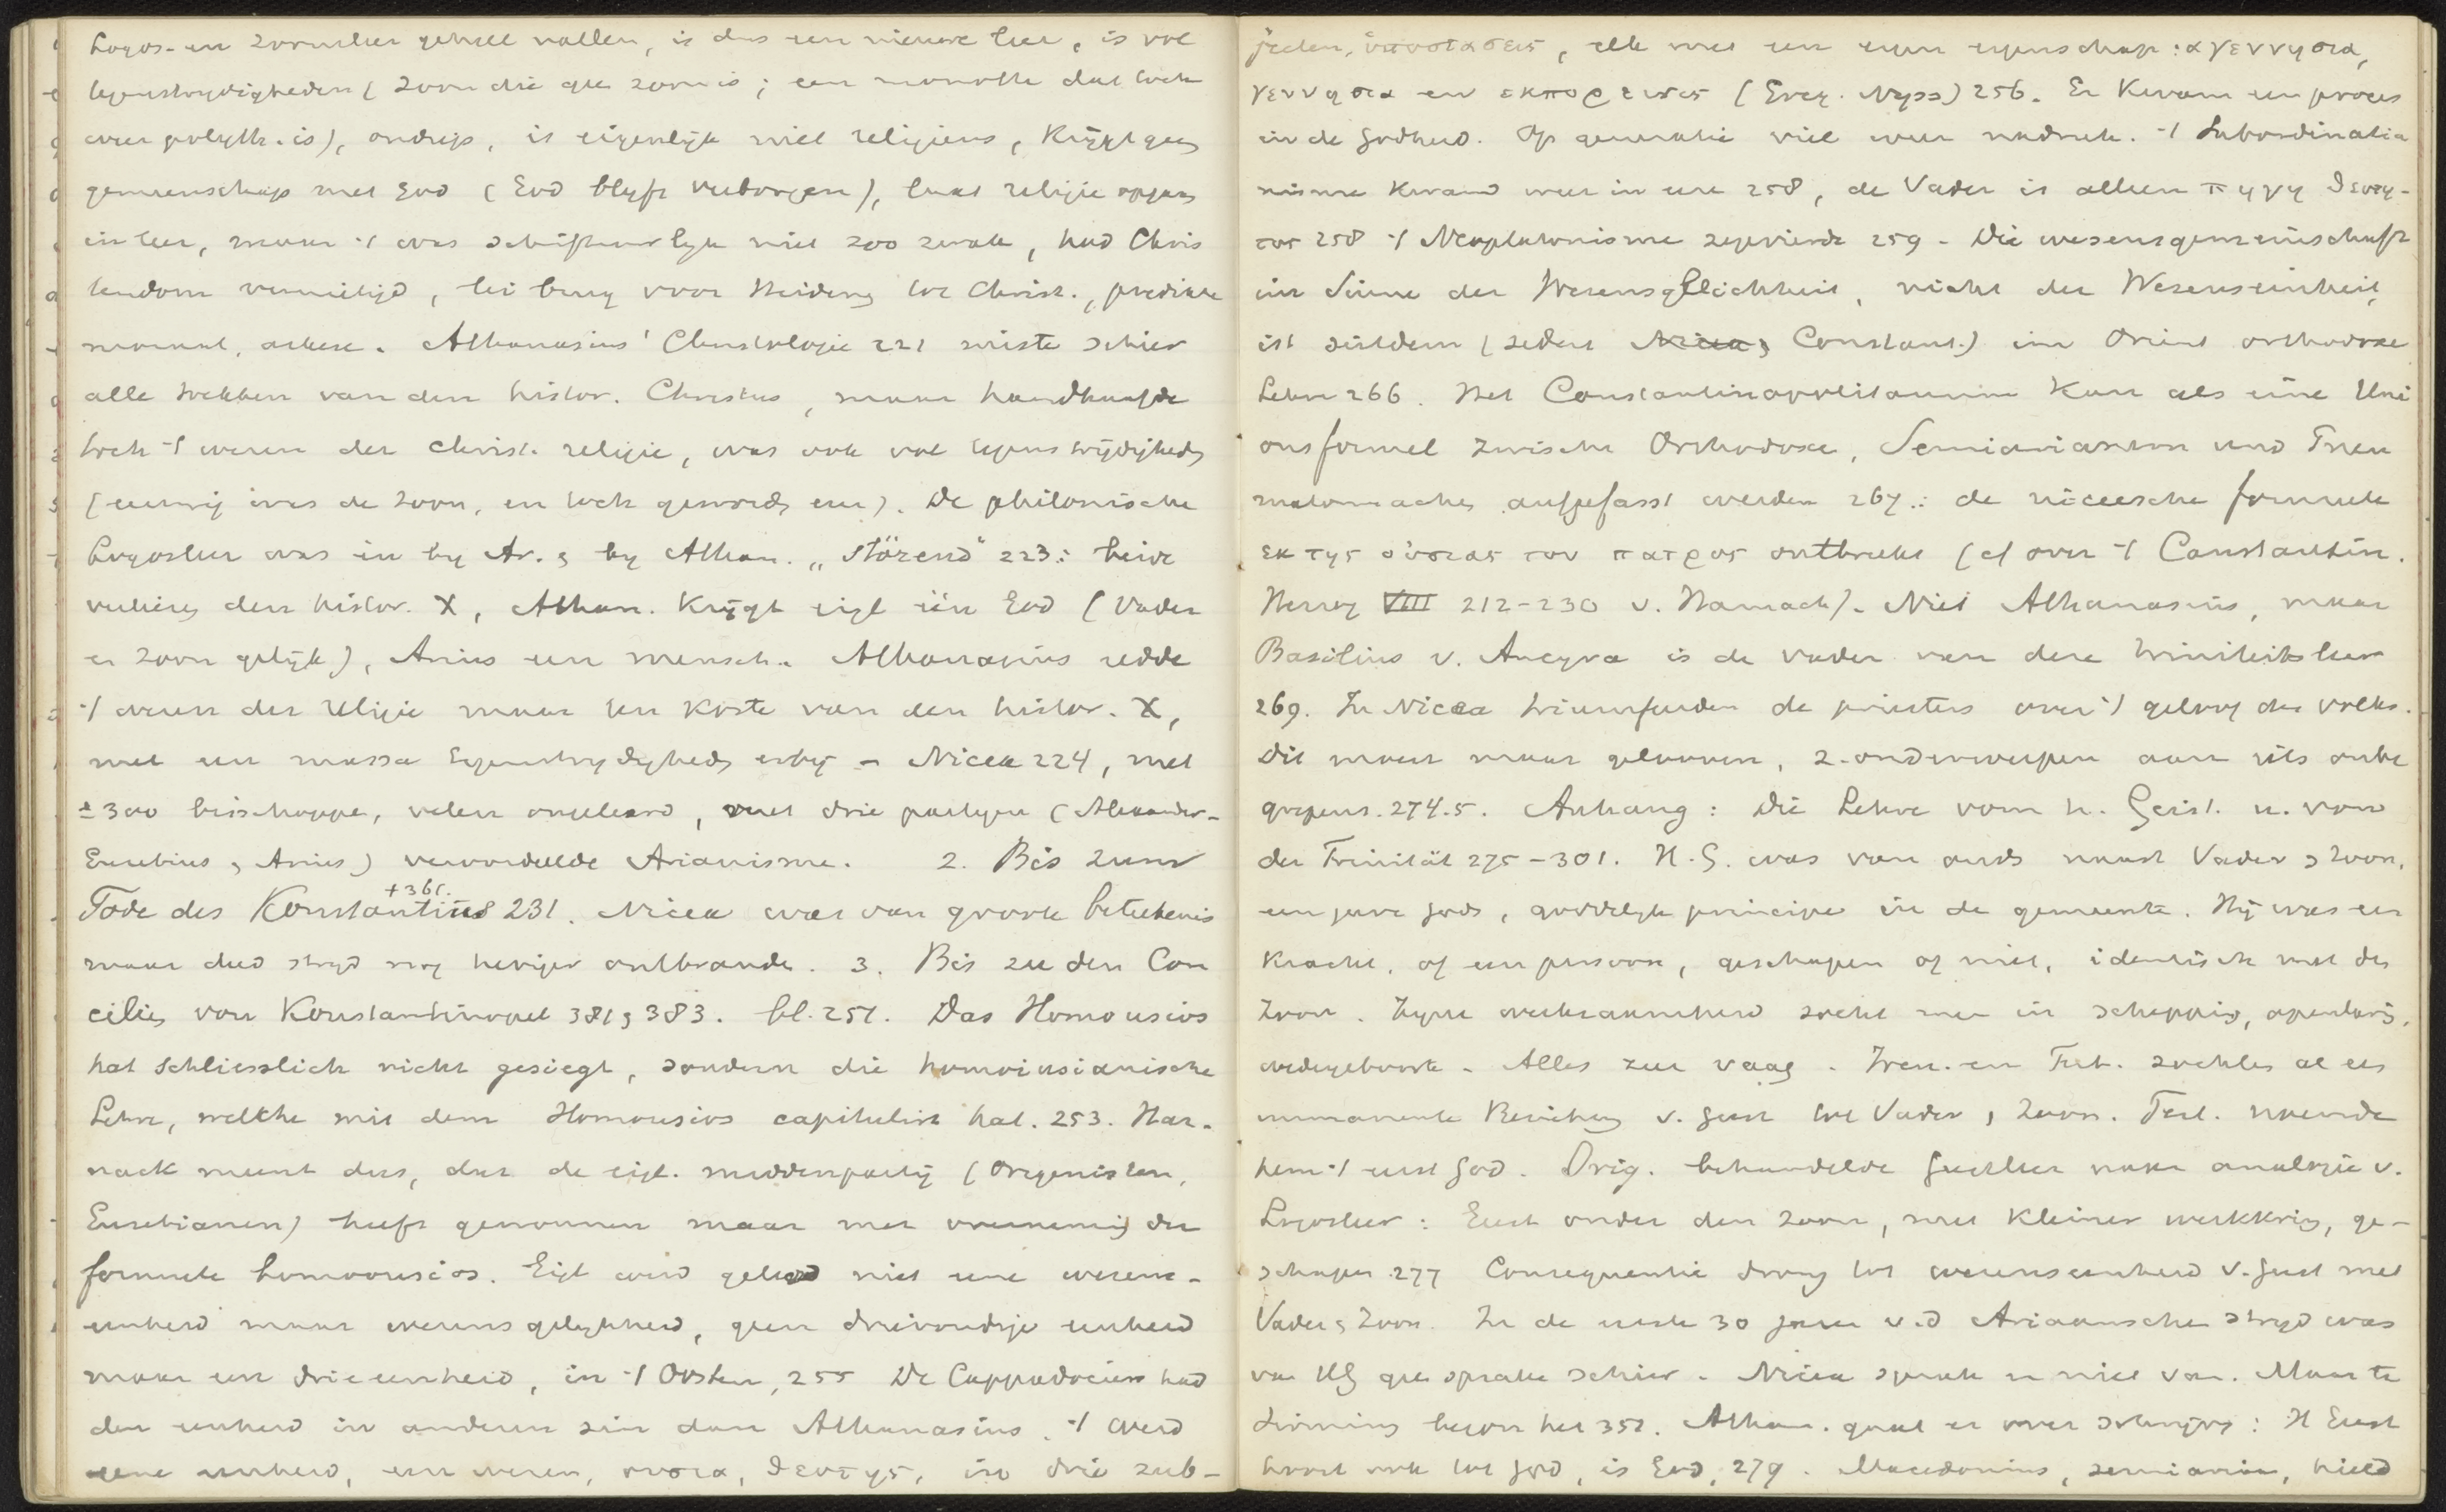 Logos- en zoonsleer geheel vallen, is dus een nieuwe leer, is vol
tegenstrydigheden (zoon die geen zoon is; een monoth. dat toch
weer polyth. is), ondiep, is eigenlijk niet religieus, krijgt geen
gemeenschap met God (God blyft verborgen), laat religie opgaan
in leer, maar 't was schriftuurlyk niet zoo zwak, had Chris
tendom vernietigd, lei brug voor Heidenen tot Christ., predikte
moraal, ascese. Athanasius' Christologie 221 wiste schier
alle trekken van den histor. Christus, maar handhaafde
toch 't wezen der christ. religie, was ook vol tegenstrijdigheden
(eeuwig was de Zoon, en toch geworden enz). De philonische
Logosleer was in by Ar. & by Athan. „störend" 223: beide
verliezen den histor. X, Athan. krijgt eigl één God (Vader
en Zoon gelijk), Arius een mensch. Athanasius redde
't wezen der religie maar ten koste van den histor. X,
met een massa tegenstrydigheden erbij – Nicea 224, met
± 300 bisschoppen, velen ongeleerd, met drie partyen (Alexander-
Eusebius & Arius) veroordeelde Arianisme. 2. Bis zum
Tode des Konstantius +361. 231. Nicea was van groote beteekenis
maar deed strijd nog heviger ontbranden. 3. Bis zu den Con
cilien von Konstantinopel 381 & 383. bl. 251. Das Homousios
hat schliesslich nicht gesiegt, sondern die homoiusianische
Lehre, welche mit dem Homousios capitulirt hat. 253. Har-
nack meent dus, dat de eigl. middenpartij (Origenisten,
Eusebianen) heeft gewonnen maar met overneming der
formule homoousios. Eigl werd geleerd niet eene wezens-
eenheid maar wezensgelykheid, geen drievoudige eenheid
maar een drieeenheid, in 't Oosten, 255 De Cappadociers had
den eenheid in anderen zin dan Athanasius. 't werd
eene eenheid, een wezen, ουσια, θεοτης, in drie zub-
jecten, ὑποστασεις, elk met een eigen eigenschap: αγεννησια,
γεννησια en εκπορευσις (Greg. Nyss) 256. Er kwam een proces
in de Godheid. Op generatie viel weer nadruk. 't Subordinatia
nisme kwam weer in eere 258, de Vader is alleen πηγη θεοτη-
τος 258 't Neoplatonisme zegevierde 259 – Die wesensgemeinschaft
im Sinne der Wesensgleichheit, nicht der Wesenseinheit,
ist seitdem (sedert Nicea & Constant.) im Orient orthodoxe
Lehre 266. Het Constantinopolitanum kan als eine Uni
onsformel zwischen Orthodoxe, Semiarianern und Pneu
matomachen aufgefasst werden 267.: de niceesche formule
εκ της ουσιας του πατρος ontbreekt (cf over 't Constantin.
Herzog VIII 212-230 v. Harnack). Niet Athanasius, maar
Basilius v. Ancyra is de vader van deze triniteitsleer
269. In Nicea triumfeerden de priesters over 't geloof des volks.
Dit moest maar gelooven, z. onderwerpen aan iets onbe
grepens. 274.5. Anhang: Die Lehre vom h. Geist. u. von
der Trinität 275-301. H.G. was van ouds naast Vader & Zoon,
een gave Gods, goddelyk principe in de gemeente. Hij was een
kracht, of een persoon, geschapen of niet, identisch met den
Zoon. Zyne werkzaamheid zocht men in schepping, openbaring,
wedergeboorte. Alles zeer vaag. Iren. en Tert. zochten al een
immanente Beziehung v. Geest tot Vader & Zoon. Tert. noemde
hem 't eerst God. Orig. behandelde Geestleer naar analogie v.
Logosleer: Geest onder den Zoon, met kleiner werkkring, ge-
schapen 277 Consequentie drong tot wezenseenheid v. Geest met
Vader & Zoon. In de eerste 30 jaren v.d Ariaansche stryd was
van HG geen sprake schier. Nicea sprak er niet van. Maar te
Sirmium begon het 351. Athan. gaat er over schrijven: H Geest
hoort ook tot God, is God, 279. Macedonius, semiariaan, hield